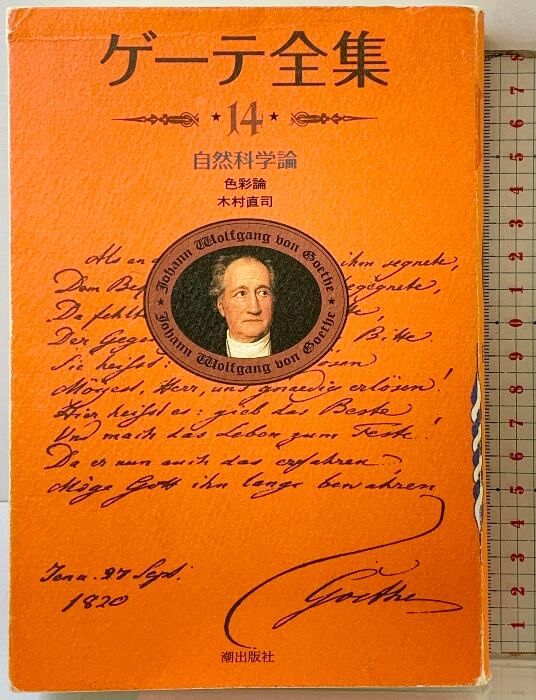 ゲーテ全集
★14★
自然科学論
色彩論
木村直司
★ Johann Wolfgang von Goethe ★
Johann Wolfgang von Goethe
Als ihm segnete,
Dem
Da fehlt
Der Bitte.
Sie heisst: lösen
Mögest, Herr, uns gnaedig erlösen!
Hier heisst es: gieb das Beste
Und mach das Leben zum Feste!
Da er nun auch das erfahren,
Möge Gott ihn lange bewahren
Jena. 27 Sept.
1820
Goethe
潮出版社
8
7
6
5
4
3
2
1
0
9
8
7
6
5
4
3
2
1